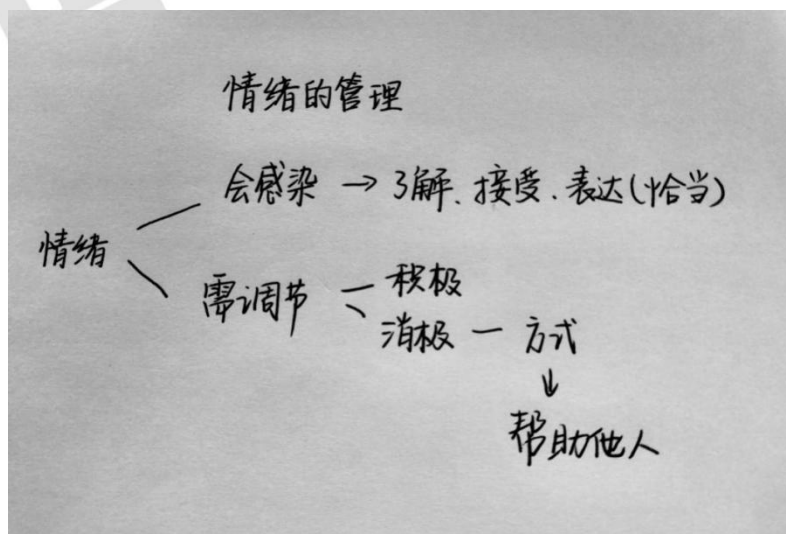 情绪的管理
会感染 → 了解、接受、表达(恰当)
情绪
需调节 积极
消极 — 方式
↓
帮助他人